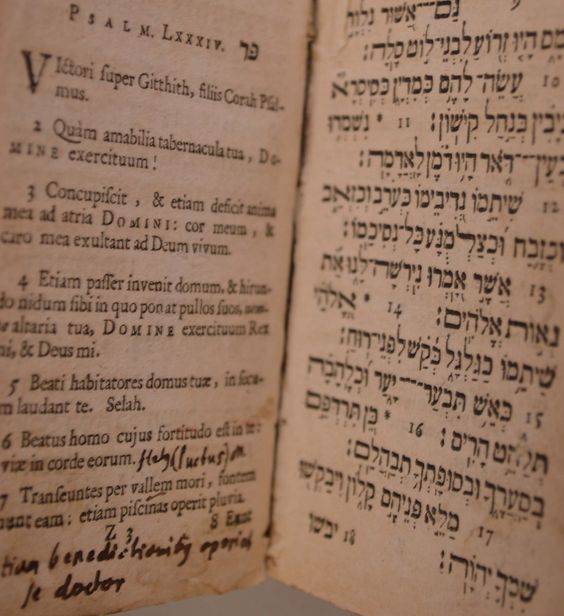 PSALM. LXXXIV. פד
VIctori super Gitthith, filiis Corah Psal-
mus.
2 Quàm amabilia tabernacula tua, DO-
MINE exercituum!
3 Concupiscit, & etiam deficit anima
mea ad atria DOMINI: cor meum, &
caro mea exultant ad Deum vivum.
4 Etiam passer invenit domum, & hirun-
do nidum sibi in quo ponat pullos suos,
altaria tua, DOMINE exercituum Rex
mi, & Deus mi.
5 Beati habitatores domus tuæ, in
laudant te. Selah.
6 Beatus homo cujus fortitudo est in te:
viæ in corde eorum. (luctus)
7 Transeuntes per vallem mori, fontem
eam: etiam piscinas operit pluvia.
Z 3 8 Eunt
benedictionib9
se doctor
גם־אשור נלוה
היו זרוע לבני־לוט סלה:
10 עשה־להם כמדין כסיסרא
כיבין בנחל קישון: 11 * נשמדו
בעין־־דאר היו דמן לאדמה:
12 שיתמו נדיבימו כערב וכזאב
וכזבח וכצלמנע כל־נסיכמו:
13 אשר אמרו נירשה־לנו את
נאות אלהים: 14 * אלהי
שיתמו כגלגל כקש לפני־רוח:
15 כאש תבער־־־יער וכלהבה
תלהט הרים: 16 * כן תרדפם
בסערך ובסופתך תבהלם:
17 מלא פניהם קלון ויבקשו
שמך יהוה: 18 יבשו